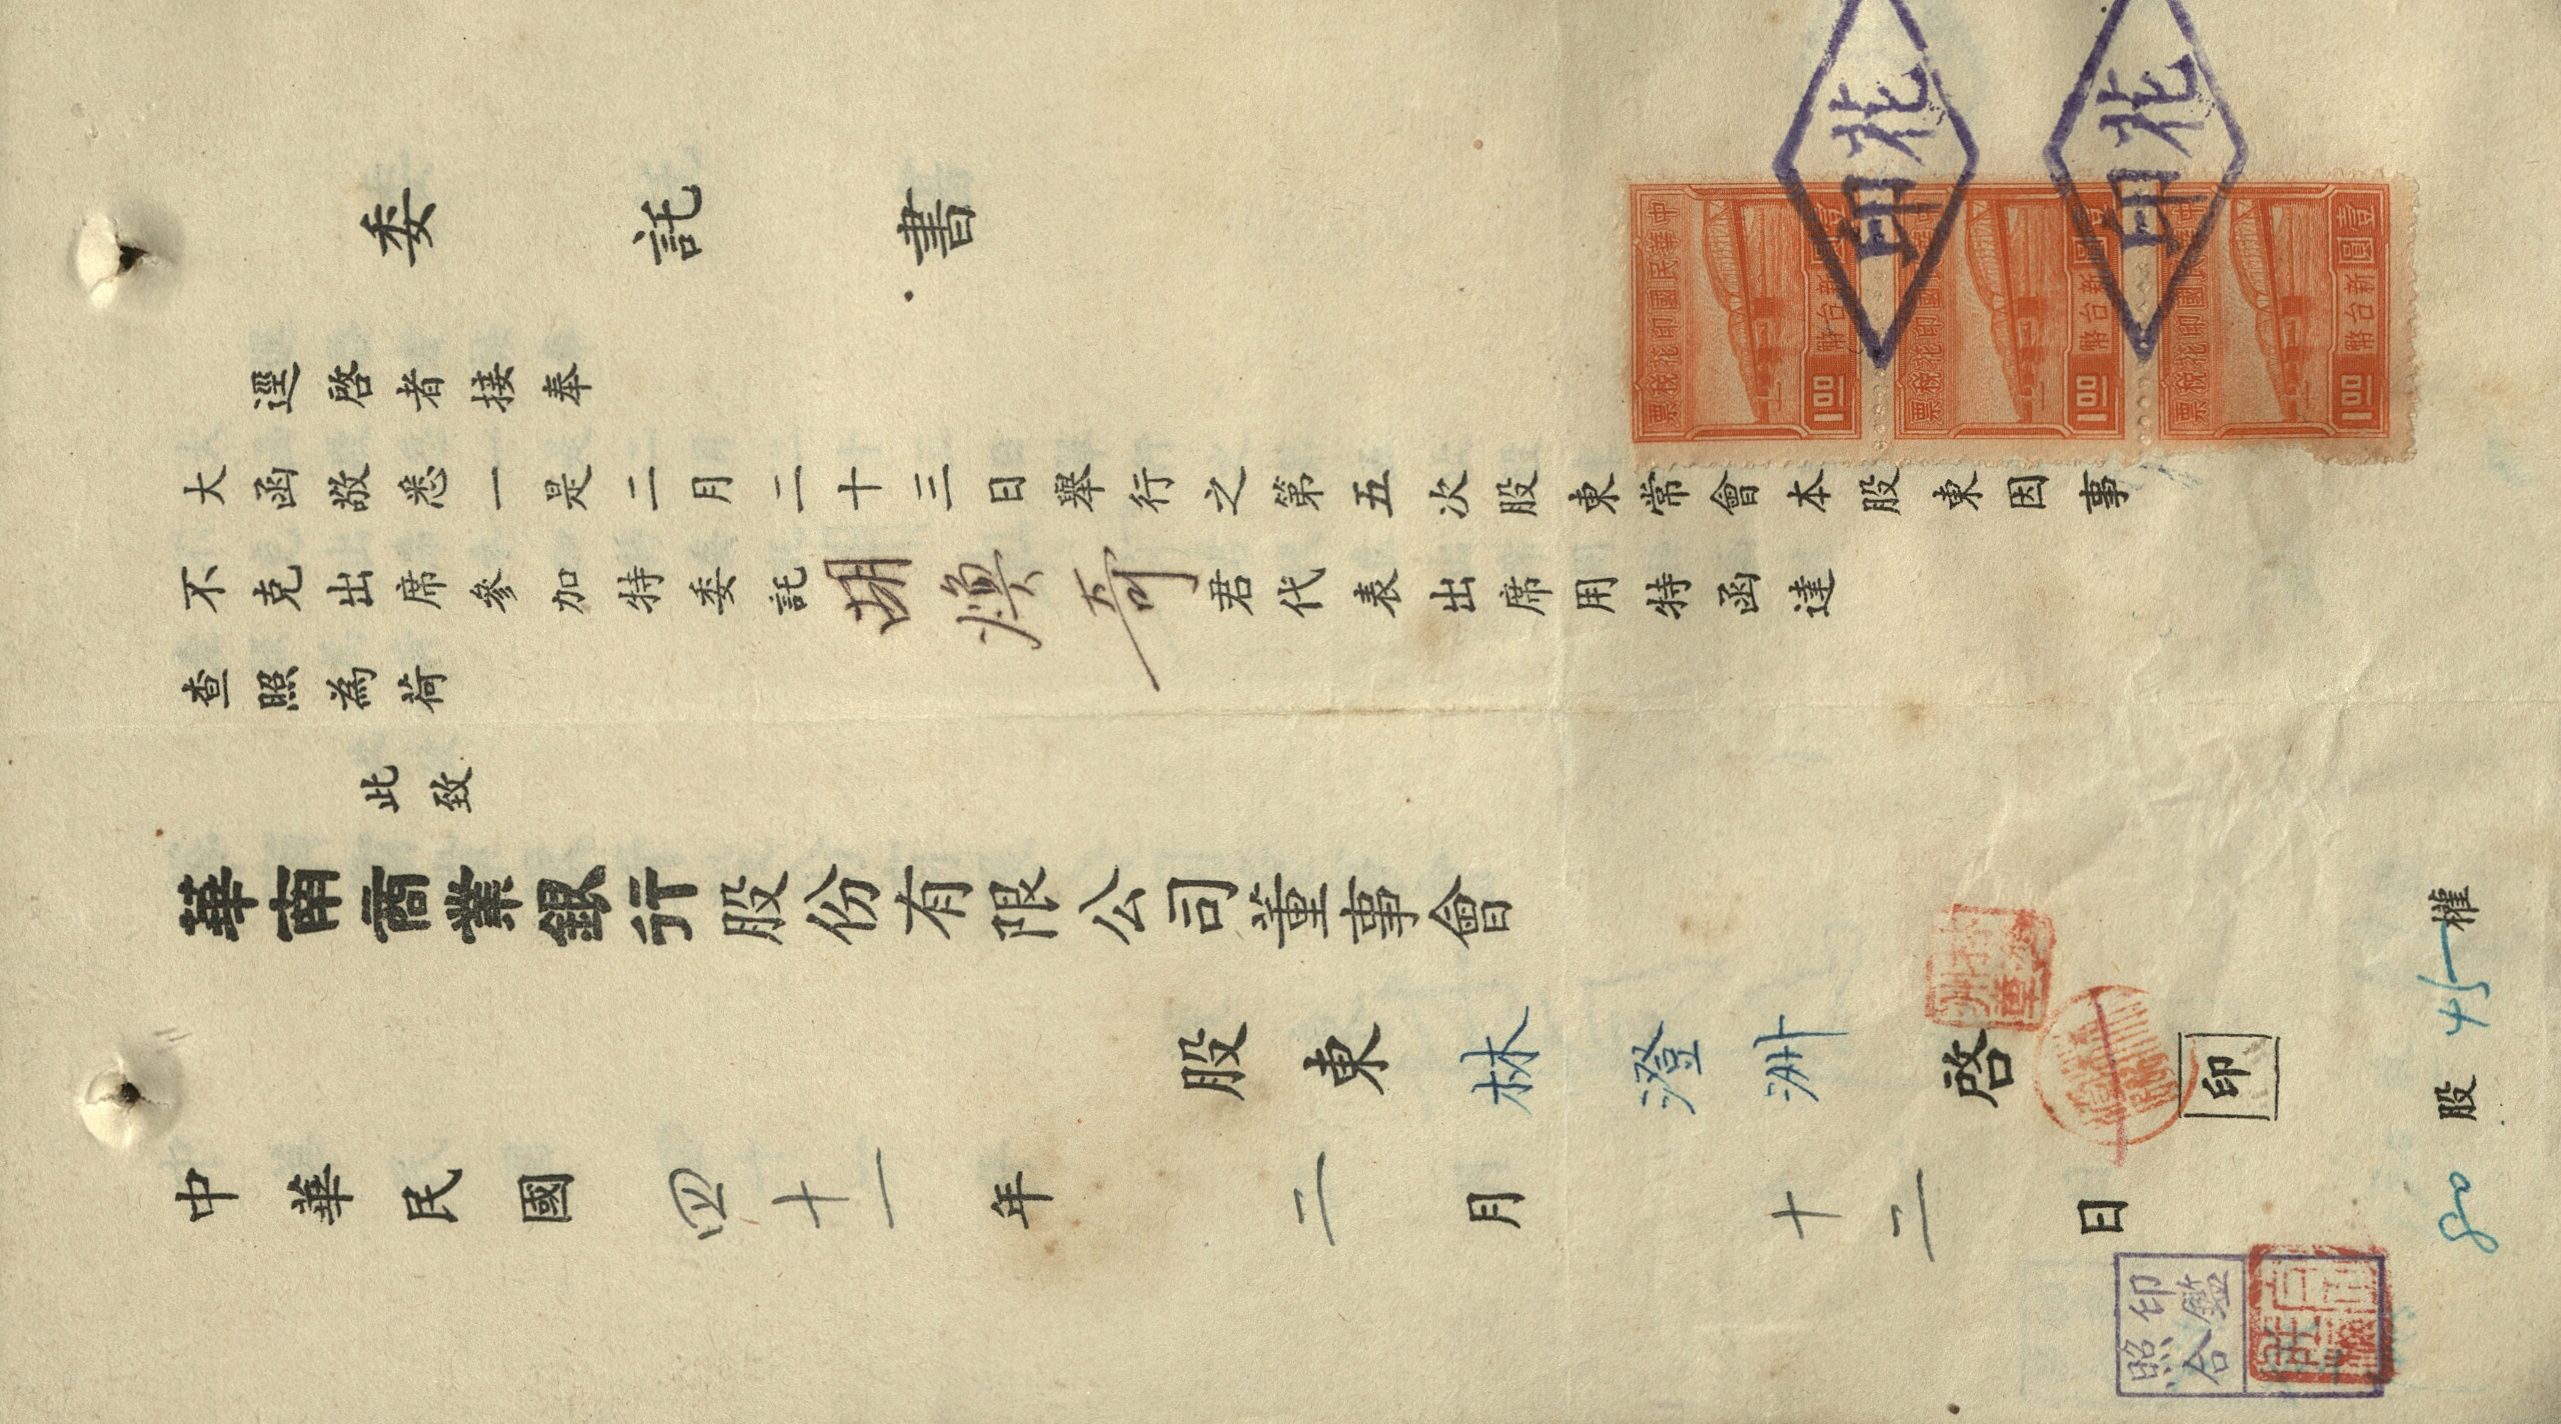 委託書
逕啓者接奉
大函敬悉一是二月二十三日舉行之第五次股東常會本股東因事
不克出席參加特委託胡煥奇君代表出席用特函達
查照為荷
此致
華南商業銀行股份有限公司董事會
股東林澄洲啓
印
中華民國四十一年二月十二日
80股45權
印鑑
照合
中華民國印花稅票
壹圓新台幣
1.00
中華民國印花稅票
壹圓新台幣
1.00
中華民國印花稅票
壹圓新台幣
1.00
印花
印花